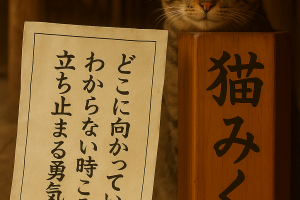 どこに向かってい
わからない時こそ
立ち止まる勇気
猫みく